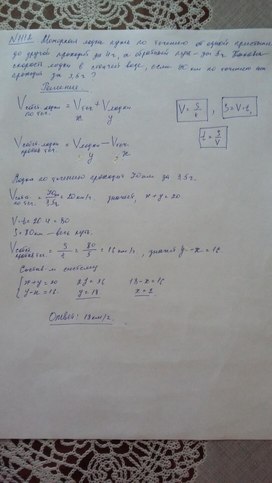 N1112. Моторная лодка прошла по течению от одной пристани
до другой проходит за 4ч, а обратный путь - за 5ч. Какова
скорость лодки в стоячей воде, если 70 км по течению она
проходит за 3,5ч?
Решение
V собств. по теч. = V теч. + V лодки
x y
V = S/t , S = V·t,
t = S/V
V собств. против теч. = V лодки − V теч.
y x
Лодка по течению проходит 70 км за 3,5ч.
= 20 км/ч значит, x + y = 20
V·t = 20·4 = 80
S = 80 км - весь путь
V собств. против теч. = S/t = 80/5 = 16 км/ч, значит y − x = 16
Составим систему
x+y=20 2y=36 18−x=16
y−x=16. y=18 x=2
Ответ: 18 км/ч.